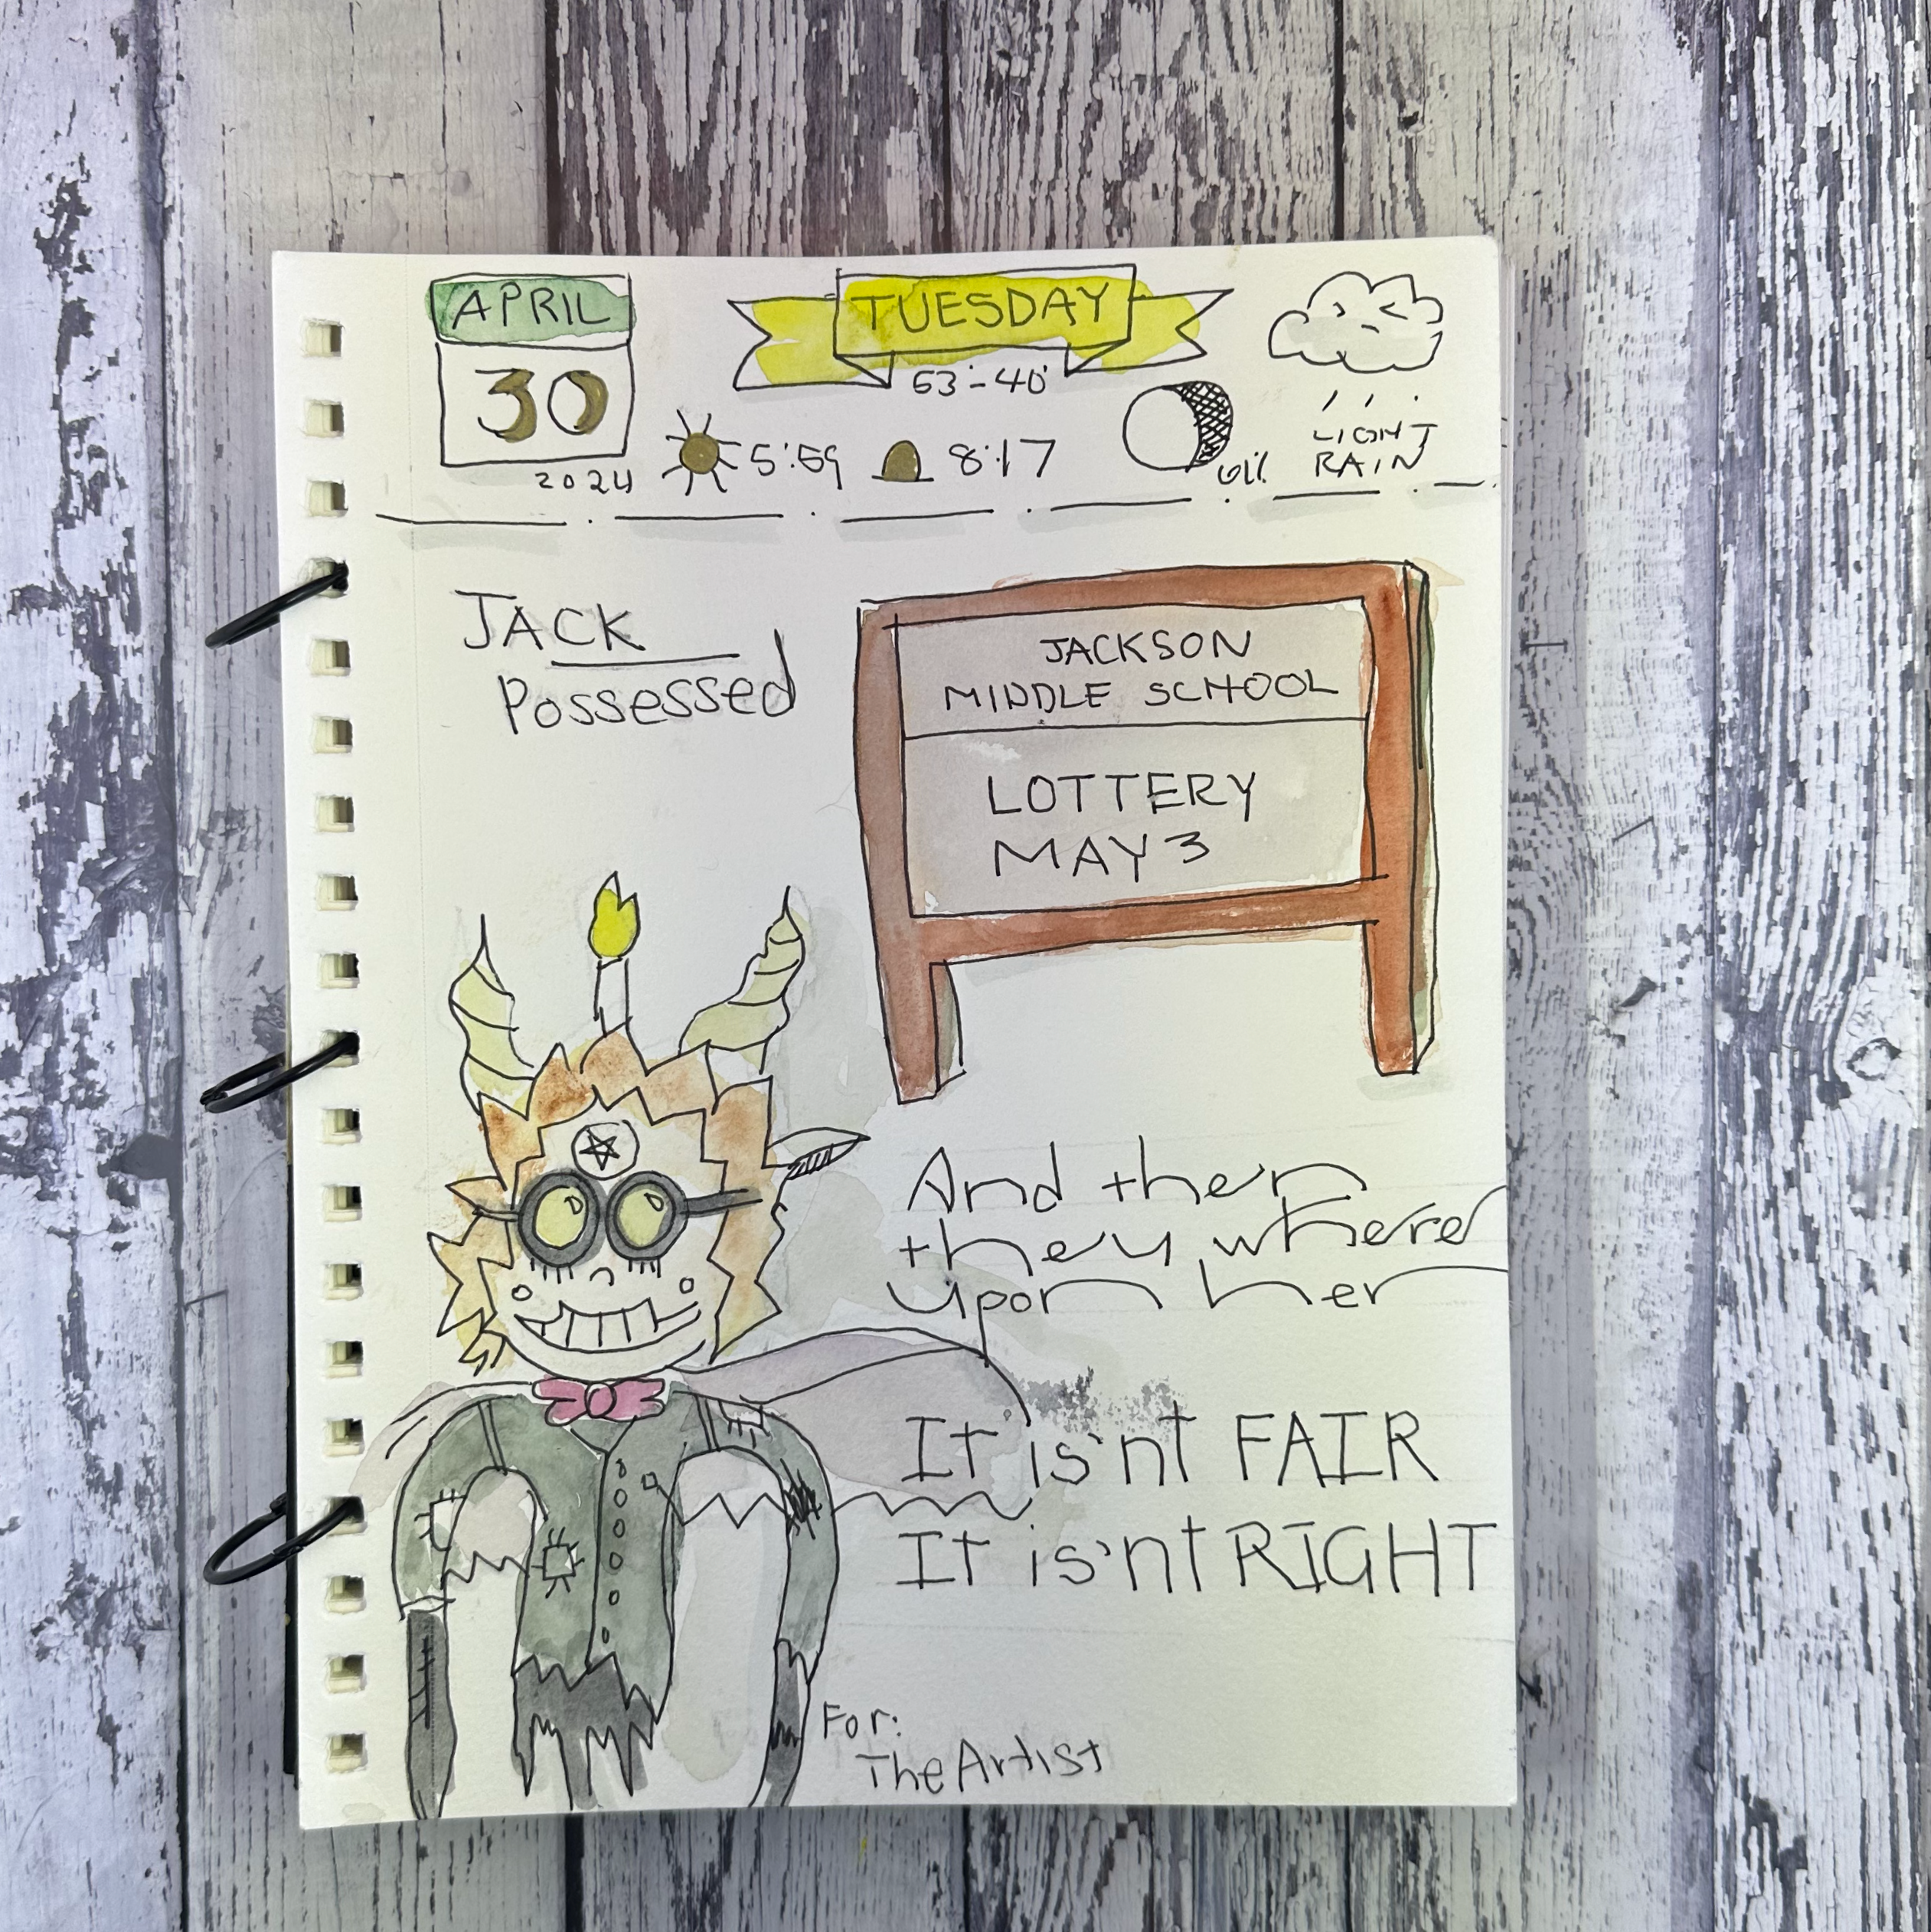 APRIL
30
2024
TUESDAY
63°-40°
5:59
8:17
61%
LIGHT
RAIN
JACK
Possessed
JACKSON
MIDDLE SCHOOL
LOTTERY
MAY 3
And then
they where
upon her
It is'nt FAIR
It is'nt RIGHT
For:
The Artist